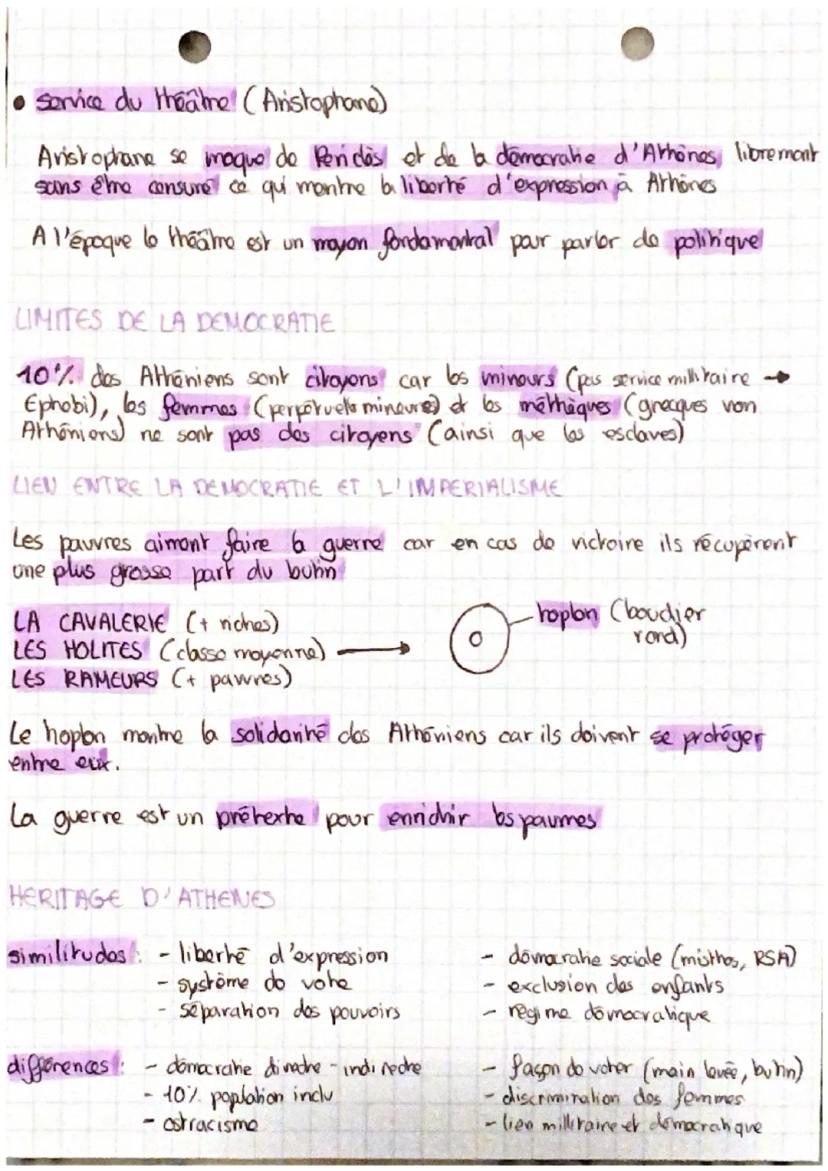 • service du théâtre (Aristophane)
Aristophane se moque de Periclès et de la démocratie d'Athènes, librement
sans être censuré ce qui montre la liberté d'expression à Athènes
A l'époque le théâtre est un moyen fondamental pour parler de politique
LIMITES DE LA DEMOCRATIE
10% des Athéniens sont citoyens car les mineurs (pas service millitaire →
Ephobi), les femmes (perpétuelle mineure) et les méthèques (grecques von
Athéniens) ne sont pas des citoyens (ainsi que les esclaves)
LIEU ENTRE LA DEMOCRATIE ET L'IMPERIALISME
Les pauvres aiment faire la guerre car en cas de victoire ils récupèrent
une plus grosse part du butin
LA CAVALERIE (+ riches)
LES HOLITES (classe moyenne) →
hoplon (boudier
rond)
LES RAMEURS (+ pauvres)
Le hoplon montre la solidarité des Athéniens car ils doivent se protéger
entre eux.
La guerre est un prétexte pour enrichir les pauvres
HERITAGE D'ATHENES
similitudes : - liberté d'expression
- système de vote
- séparation des pouvoirs
- démocratie sociale (misthos, RSA)
- exclusion des enfants
- régime démocratique
différences : - démocratie directe - indirecte
- 10% poplation inclu
- ostracisme
- façon de voter (main levée, butin)
- discrimination des femmes
- lien millitaire et démocratique